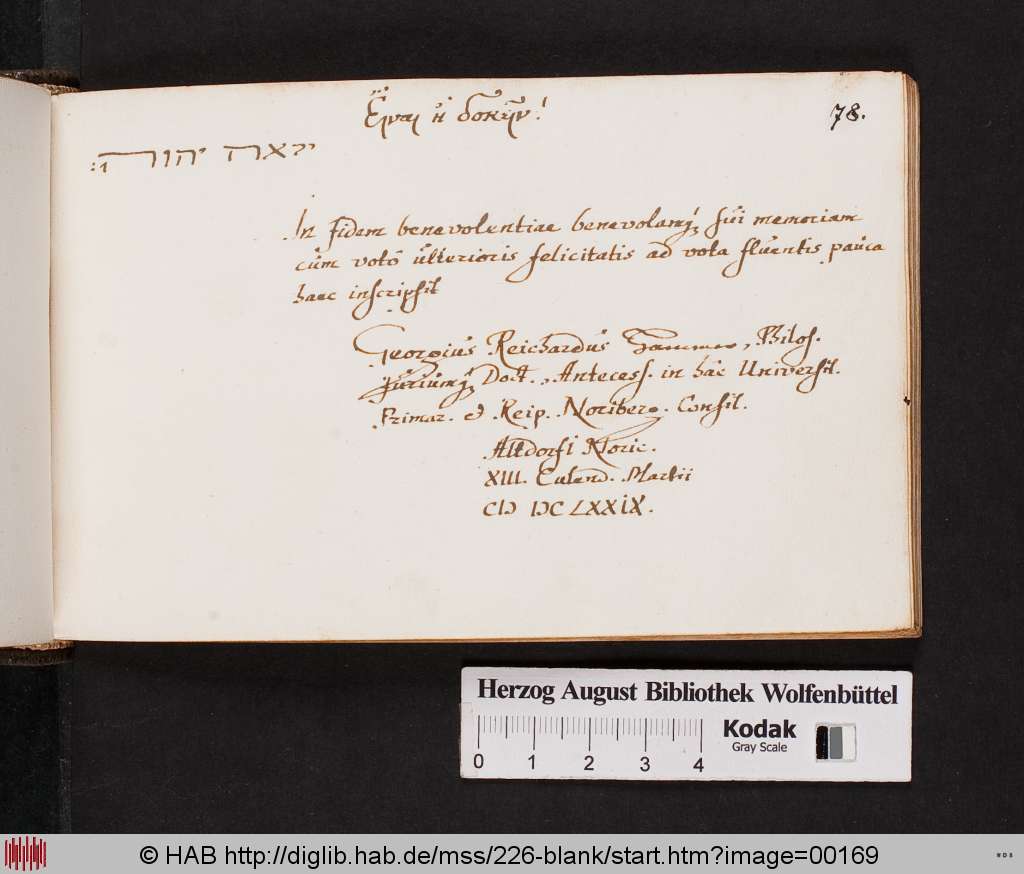 Εἶναι ἢ δοκεῖν!
78.
יראה יהוה
In fidem benevolentiae benevolamq; sui memoriam
cùm votô ulterioris felicitatis ad vota fluentis pauca
haec inscripsit
Georgius Reichardus Hammer, Philos.
Juriumq; Doct., Antecess. in hâc Universit.
Primar. & Reip. Noriberg. Consil.
Altdorfi Noric.
XIII. Calend. Martii
CIↃ IↃC LXXIX.
Herzog August Bibliothek Wolfenbüttel
Kodak
Gray Scale
0 1 2 3 4
© HAB http://diglib.hab.de/mss/226-blank/start.htm?image=00169